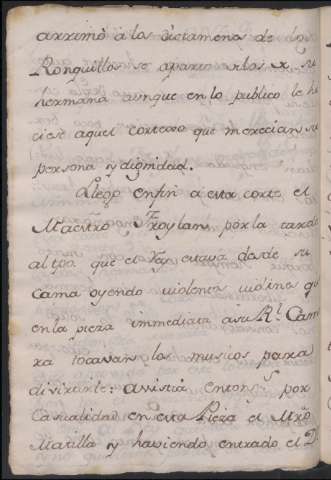 arrimò à los dictamens de los
Ronquillos se aparto de los de su
hermana aunque en lo publico le hi
ciese aquel cortexo que merecian su
persona y dignidad.
Llegò enfin à esta corte el
Maestro Froylan por la tarde
al tpo. que el Rey estava desde su
Cama oyendo violones violines qe
en la pieza immediata a su Rl. Cam
ra tocavan los musicos para
divirtirle: asistia entonzs. por
Casualidad en esta Pieza el Mtro
Matilla y haviendo entrado el D